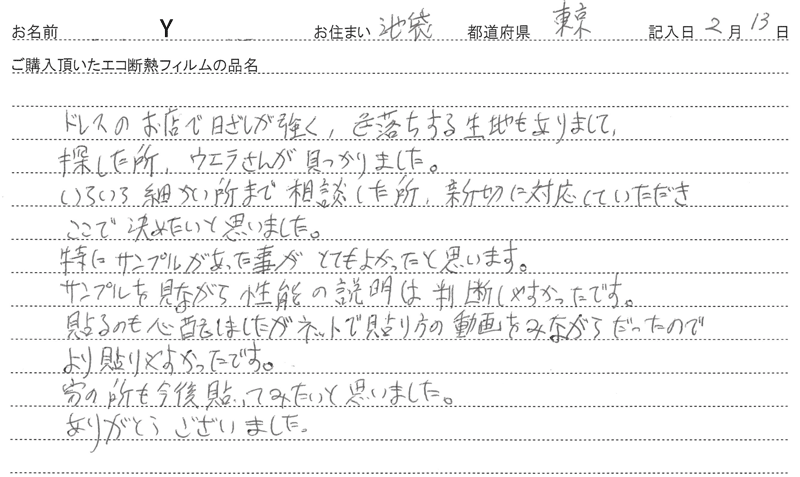 お名前 Y お住まい 池袋 都道府県 東京 記入日 2月13日
ご購入頂いたエコ断熱フィルムの品名
ドレスのお店で日ざしが強く、色落ちする生地もありまして、
探した所、ウエラさんが見つかりました。
いろいろ細かい所まで相談した所、親切に対応していただき
ここで決めたいと思いました。
特にサンプルがあった事がとてもよかったと思います。
サンプルを見ながら性能の説明は判断しやすかったです。
貼るのも心配しましたがネットで貼り方の動画をみながらだったので
より貼りやすかったです。
家の所も今後貼ってみたいと思いました。
ありがとうございました。